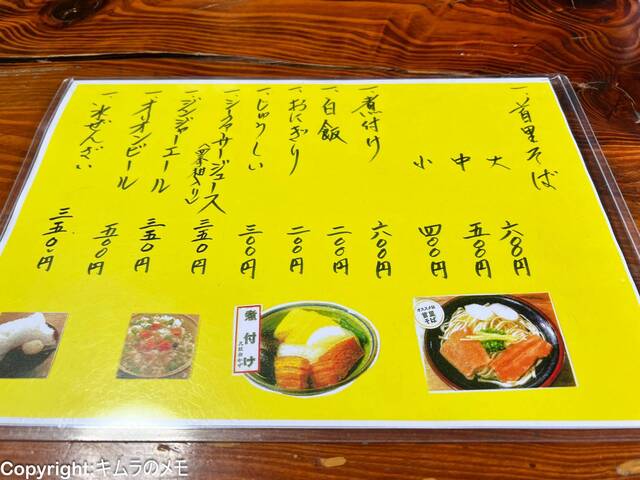 一、首里そば
大 六〇〇円
中 五〇〇円
小 四〇〇円
一、煮付け 六〇〇円
一、白飯 二〇〇円
一、おにぎり 二〇〇円
一、じゅうしい 三〇〇円
一、シークァーサージュース 三五〇円
(四季柑入り)
一、ジンジャーエール 三五〇円
一、オリオンビール 五〇〇円
一、氷ぜんざい 三五〇円
オススメは
首里
そば
煮付け
Copyright:キムラのメモ